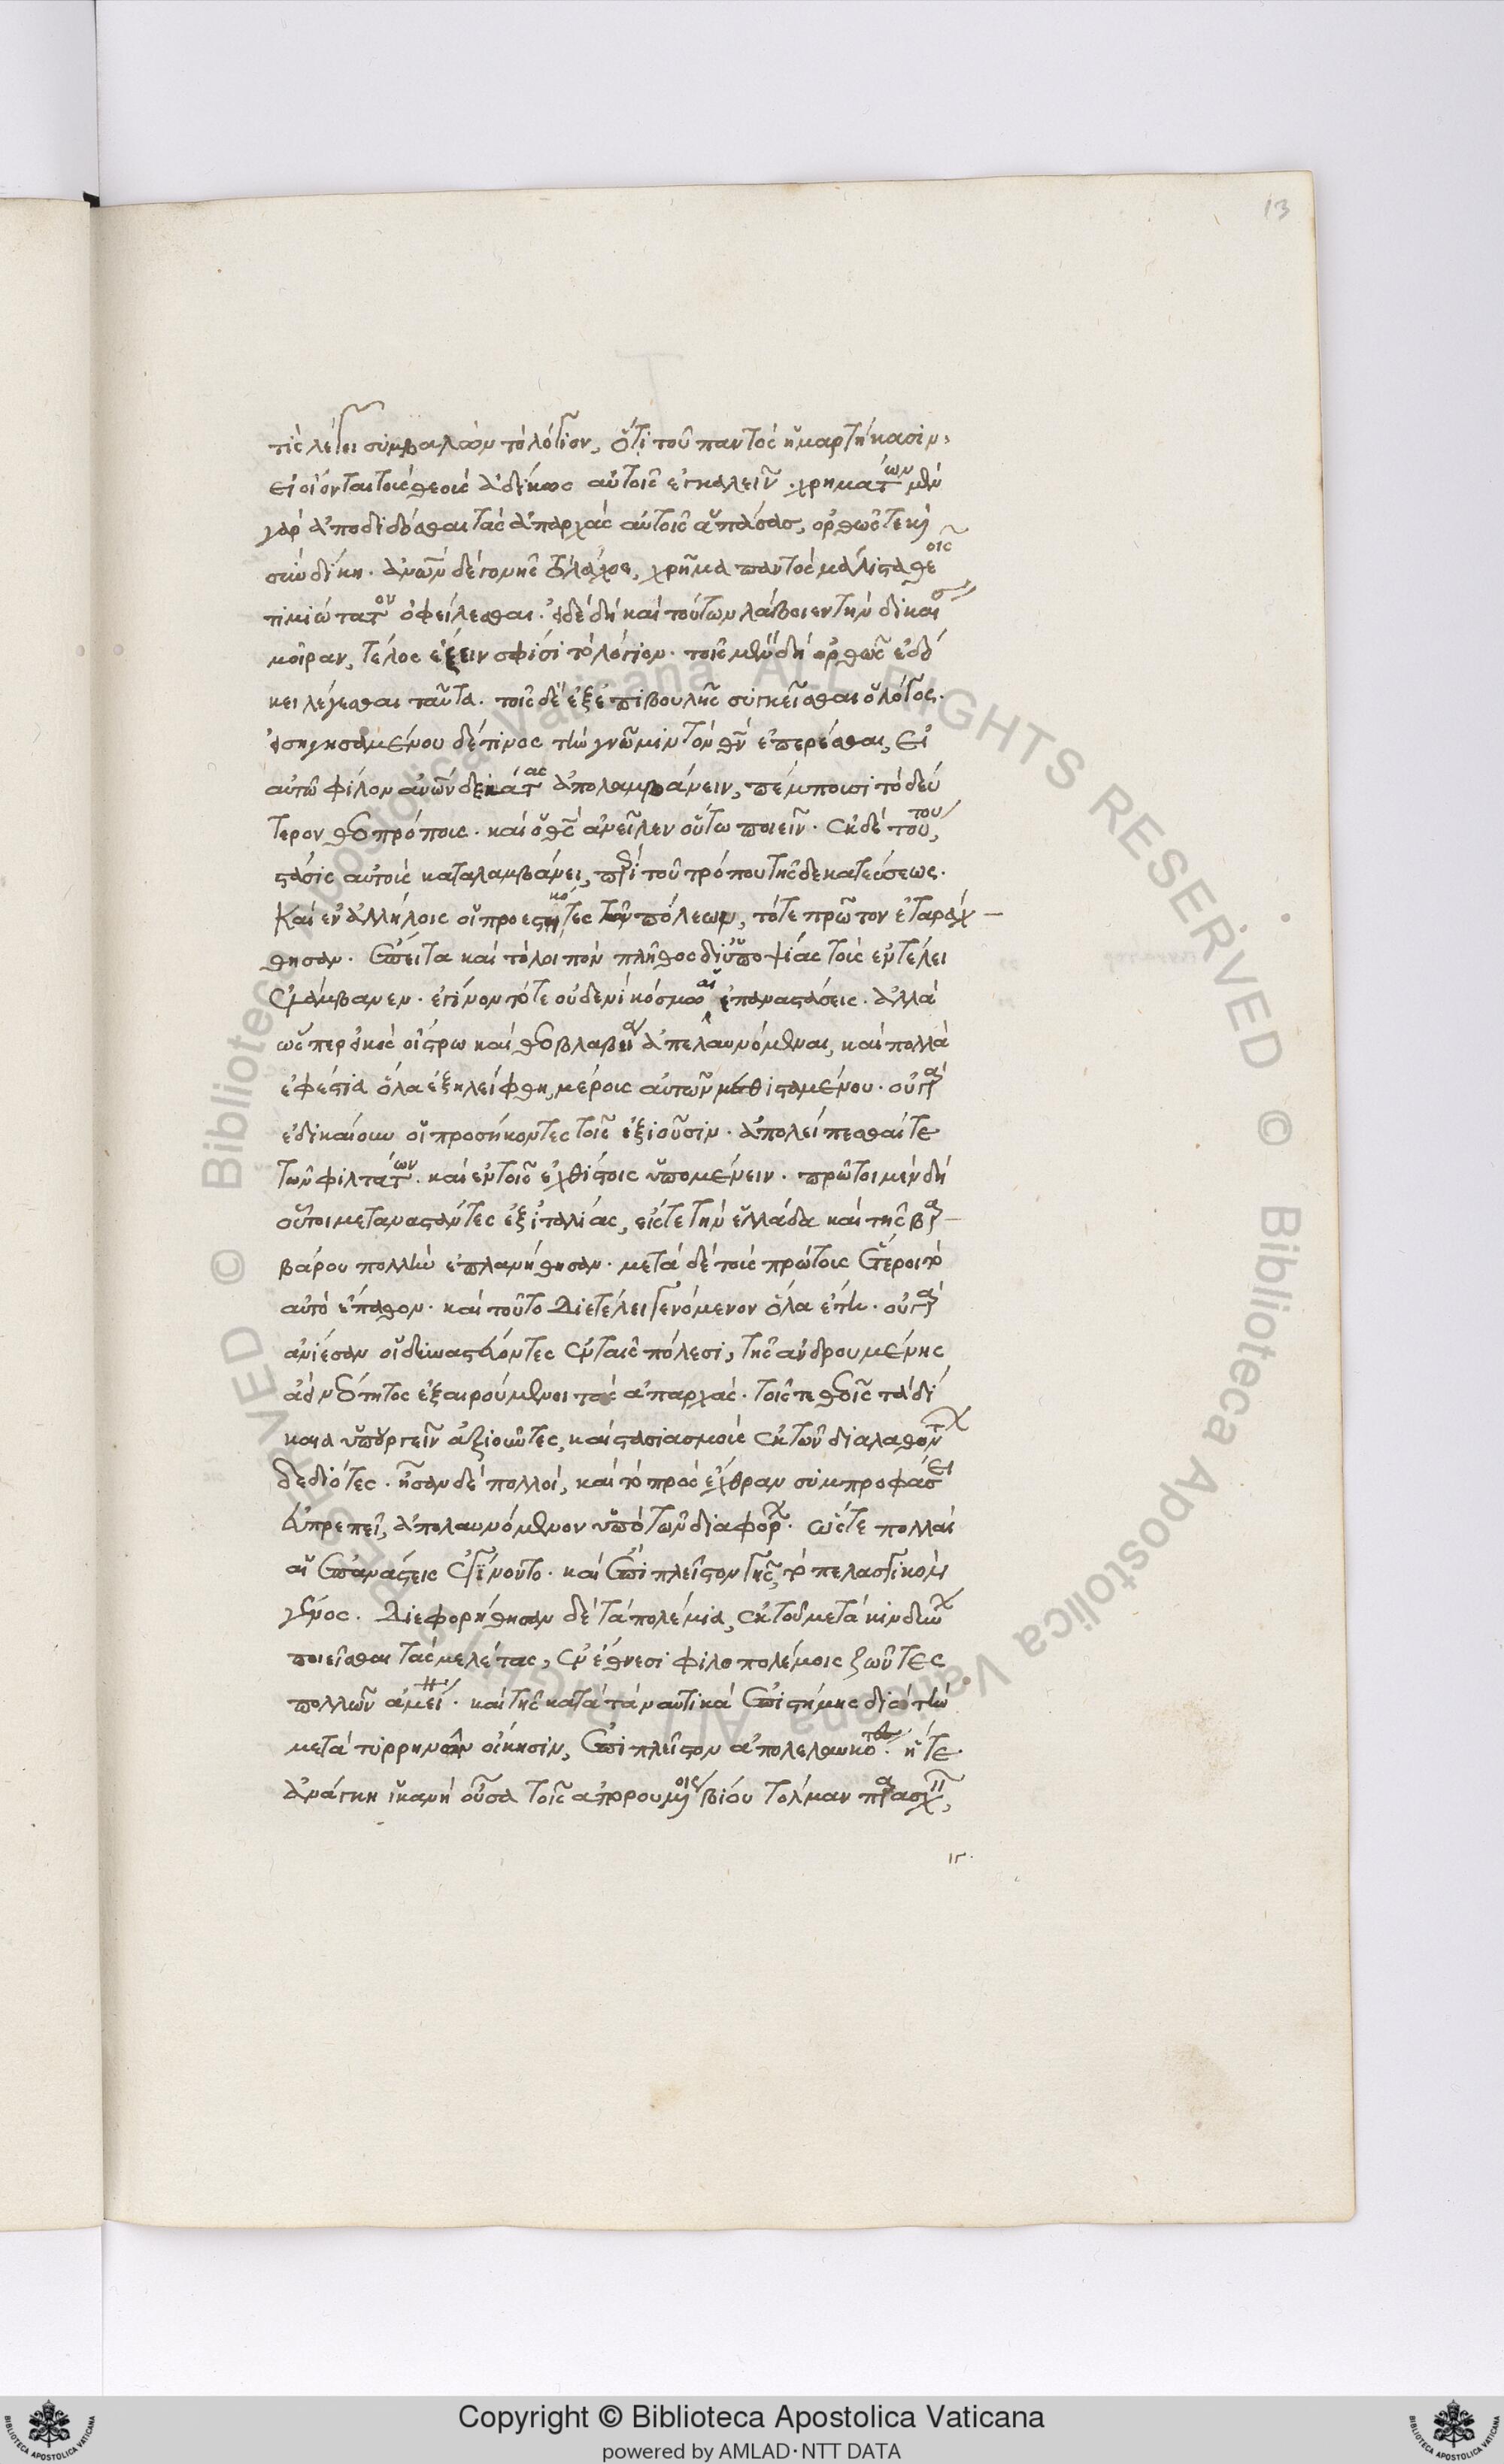 13
τὶς λέγει συμβαλὼν τὸ λόγιον, ὅτι τοῦ παντὸς ἡμαρτήκασιν,
εἰ οἴονται τοὺς θεοὺς ἀδίκως αὐτοῖς ἐγκαλεῖν. χρημάτων μὲν
γὰρ ἀποδίδοσθαι τὰς ἀπαρχὰς αὐτοῖς ἁπάσας, ὀρθῶς τε καὶ
σὺν δίκη. ἀνῶν δὲ γονῆς τὸ λάχος, χρῆμα παντὸς μάλιστα θεοῖς
τιμιώτατον ὀφείλεσθαι. εἰ δὲ δὴ καὶ τούτων λάβοιεν τὴν δικαίαν
μοῖραν, τέλος ἕξειν σφίσι τὸ λόγιον. τοῖς μὲν δὴ ὀρθῶς ἐδό
κει λέγεσθαι ταῦτα. τοῖς δὲ ἐξ ἐπιβουλῆς συγκεῖσθαι ὁ λόγος.
εἰσηγησαμένου δέ τινος τὴν γνώμην τὸν θν ἐπερέσθαι, εἰ
αὐτῶ φίλον ἀνῶν δεκάτας ἀπολαμβάνειν, πέμπουσι τὸ δεύ
τερον θεοπρόπους. καὶ ὁ θς ἀνεῖλεν οὕτω ποιεῖν. ἐκ δὲ τούτου,
στάσις αὐτοὺς καταλαμβάνει, περὶ τοῦ τρόπου τῆς δεκατεύσεως.
καὶ ἐν ἀλλήλοις οἱ προεστηκότες τῶν πόλεων, τότε πρῶτον ἐταράχ–
θησαν. ἔπειτα καὶ τὸ λοιπὸν πλῆθος δι' ὑποψίας τοὺς ἐν τέλει
ἐλάμβανεν. ἐγίνοντό τε οὐδενὶ κόσμω αἱ ἐπαναστάσεις. ἀλλὰ
ὥσπερ εἰκὸς οἴστρω καὶ θεοβλαβεία ἀπελαυνόμεναι, καὶ πολλὰ
ἐφέστια ὅλα ἐξηλείφθη, μέρους αὐτῶν μεθισταμένου. οὐ γὰρ
ἐδικαίουν οἱ προσήκοντες τοῖς ἐξιοῦσιν. ἀπολείπεσθαί τε
τῶν φιλτάτων. καὶ ἐν τοῖς ἐχθίστοις ὑπομένειν. πρῶτοι μὲν δὴ
οὗτοι μεταναστάντες ἐξ ἰταλίας, εἴς τε τὴν ἑλλάδα καὶ τῆς βαρ–
βάρου πολλὴν ἐπλανήθησαν. μετὰ δὲ τοὺς πρώτους ἕτεροι τὸ
αὐτὸ ἔπαθον. καὶ τοῦτο διετέλει γενόμενον ὅλα ἔτη. οὐ γὰρ
ἀνίεσαν οἱ δυναστεύοντες ἐν ταῖς πόλεσι, τῆς ἀνδρουμένης
ἀεὶ νεότητος ἐξαιρούμενοι τὰς ἀπαρχάς. τοῖς τε θεοῖς τὰ δί
καια ὑπουργεῖν ἀξιοῦντες, καὶ στασιασμοὺς ἐκ τῶν διαλαθόντων
δεδιότες. ἦσαν δὲ πολλοί, καὶ τὸ πρὸς ἔχθραν σὺν προφάσει
εὐπρεπεῖ, ἀπολαυνόμενον ὑπὸ τῶν διαφόρων. ὥστε πολλαὶ
αἱ ἐπανάστεις ἐγίνοντο. καὶ ἐπὶ πλεῖστον γῆς, τὸ πελασγικὸν
γένος. διεφορήθησαν δὲ τὰ πολέμια, ἐκ τοῦ μετὰ κινδύνων
ποιεῖσθαι τὰς μελέτας, ἐν ἔθνεσι φιλοπολέμοις ζῶντες
πολλῶν ἀμεί. καὶ τῆς κατὰ τὰ ναυτικὰ ἐπιστήμης διὰ τὴν
μετὰ τυρρηνῶν οἴκησιν, ἐπὶ πλεῖστον ἀπολελαυκότες. ἥ τε
ἀνάγκη ἱκανὴ οὖσα τοῖς ἀπορουμένοις βίου τόλμαν παρασχεῖν,
Copyright © Biblioteca Apostolica Vaticana
powered by AMLAD·NTT DATA